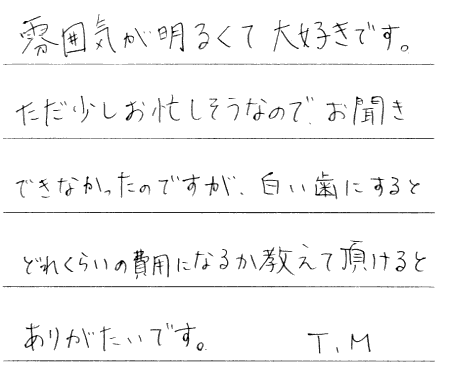 雰囲気が明るくて大好きです。
ただ少しお忙しそうなので、お聞き
できなかったのですが、白い歯にすると
どれくらいの費用になるか教えて頂けると
ありがたいです。 T.M